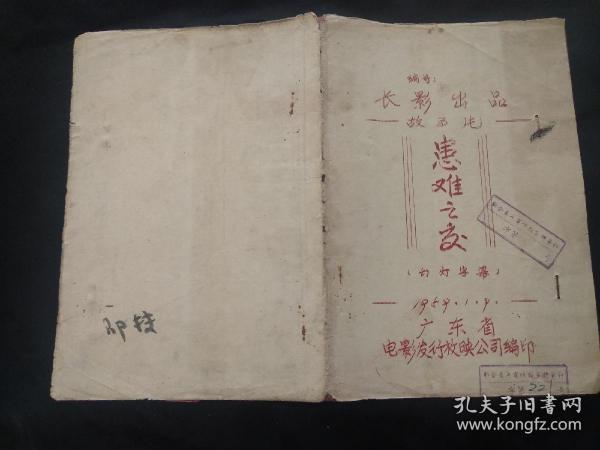 编号:
长影出品
故事片
患难之交
(幻灯字幕)
1959.1.9.
广东省
电影发行放映公司编印
22
孔夫子旧书网
www.kongfz.com